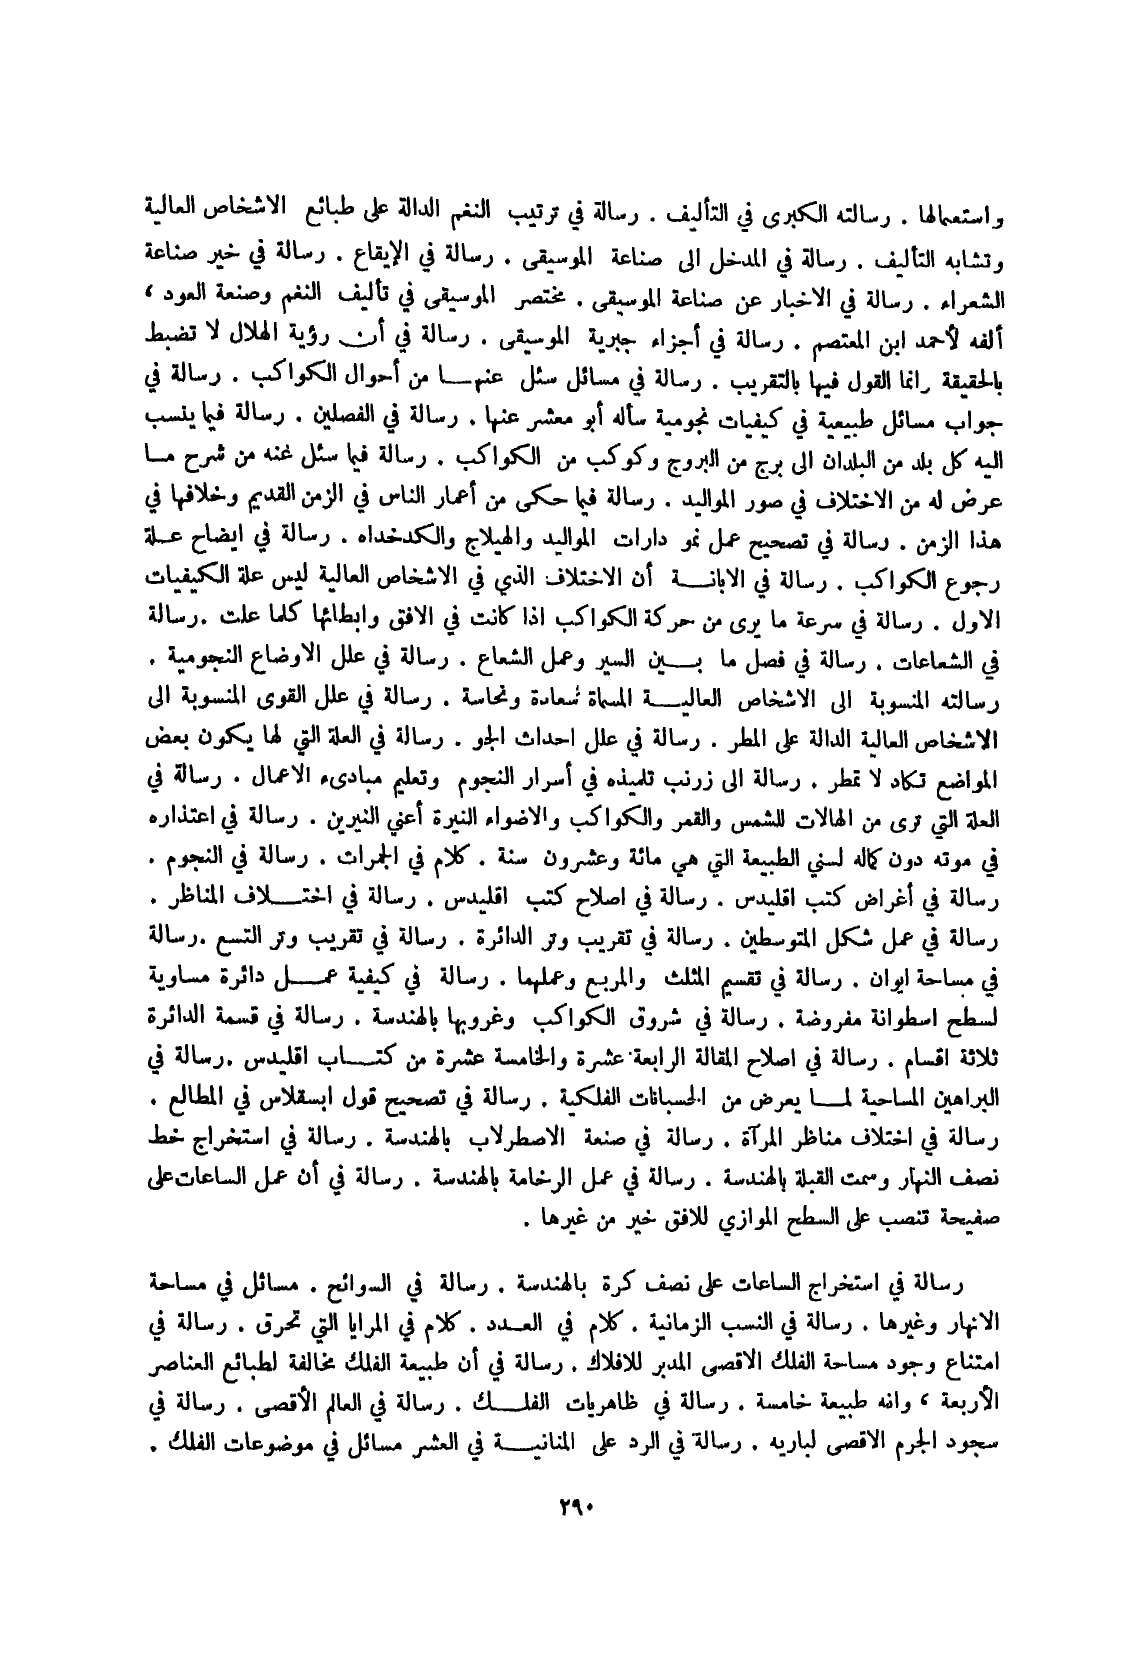 واستعمالها . رسالته الكبرى في التأليف . رسالة في ترتيب النغم الدالة على طبائع الاشخاص العالية
وتشابه التأليف . رسالة في المدخل الى صناعة الموسيقى . رسالة في الإيقاع . رسالة في خبر صناعة
الشعراء . رسالة في الاخبار عن صناعة الموسيقى . مختصر الموسيقى في تأليف النغم وصنعة العود ،
ألفه لأحمد ابن المعتصم . رسالة في أجزاء جبرية الموسيقى . رسالة في أن رؤية الهلال لا تضبط
بالحقيقة وانما القول فيها بالتقريب . رسالة في مسائل سئل عنهـا من أحوال الكواكب . رسالة في
جواب مسائل طبيعية في كيفيات نجومية سأله أبو معشر عنها . رسالة في الفصلين . رسالة فيما ينسب
اليه كل بلد من البلدان الى برج من البروج وكوكب من الكواكب . رسالة فيما سئل عنه من شرح مـا
عرض له من الاختلاف في صور المواليد . رسالة فيما حكى من أعمار الناس في الزمن القديم وخلافها في
هذا الزمن . رسالة في تصحيح عمل نمو دارات المواليد والهيلاج والكدخداه . رسالة في ايضاح عـلة
رجوع الكواكب . رسالة في الابانـة أن الاختلاف الذي في الاشخاص العالية ليس علة الكيفيات
الاول . رسالة في سرعة ما يرى من حركة الكواكب اذا كانت في الافق وابطائها كلما علت .رسالة
في الشعاعات . رسالة في فصل ما بـين السير وعمل الشعاع . رسالة في علل الاوضاع النجومية .
رسالته المنسوبة الى الاشخاص العاليـة المسماة سعادة ونحاسة . رسالة في علل القوى المنسوبة الى
الاشخاص العالية الدالة على المطر . رسالة في علل احداث الجو . رسالة في العلة التي لها يكون بعض
المواضع تكاد لا تمطر . رسالة الى زرنب تلميذه في أسرار النجوم وتعليم مبادىء الاعمال . رسالة في
العلة التي ترى من الهالات للشمس والقمر والكواكب والاضواء النيرة أعني النيرين . رسالة في اعتذاره
في موته دون كماله لسني الطبيعة التي هي مائة وعشرون سنة . كلام في الجمرات . رسالة في النجوم .
رسالة في أغراض كتب اقليدس . رسالة في اصلاح كتب اقليدس . رسالة في اختـلاف المناظر .
رسالة في عمل شكل المتوسطين . رسالة في تقريب وتر الدائرة . رسالة في تقريب وتر التسع .رسالة
في مساحة ايوان . رسالة في تقسيم المثلث والمربع وعملهما . رسالة في كيفية عمـل دائرة مساوية
لسطح اسطوانة مفروضة . رسالة في شروق الكواكب وغروبها بالهندسة . رسالة في قسمة الدائرة
ثلاثة اقسام . رسالة في اصلاح المقالة الرابعة عشرة والخامسة عشرة من كتـاب اقليدس .رسالة في
البراهين المساحية لمـا يعرض من الحسبانات الفلكية . رسالة في تصحيح قول ابسقلاس في المطالع .
رسالة في اختلاف مناظر المرآة . رسالة في صنعة الاصطرلاب بالهندسة . رسالة في استخراج خط
نصف النهار وسمت القبلة بالهندسة . رسالة في عمل الرخامة بالهندسة . رسالة في أن عمل الساعات على
صفيحة تنصب على السطح الموازي للافق خير من غيرها .
رسالة في استخراج الساعات على نصف كرة بالهندسة . رسالة في السوائح . مسائل في مساحة
الانهار وغيرها . رسالة في النسب الزمانية . كلام في العـدد . كلام في المرايا التي تحرق . رسالة في
امتناع وجود مساحة الفلك الاقصى المدبر للافلاك . رسالة في أن طبيعة الفلك مخالفة لطبائع العناصر
الأربعة ، وانه طبيعة خامسة . رسالة في ظاهريات الفلـك . رسالة في العالم الأقصى . رسالة في
سجود الجرم الاقصى لباريه . رسالة في الرد على المنانيـة في العشر مسائل في موضوعات الفلك .
٢٩٠